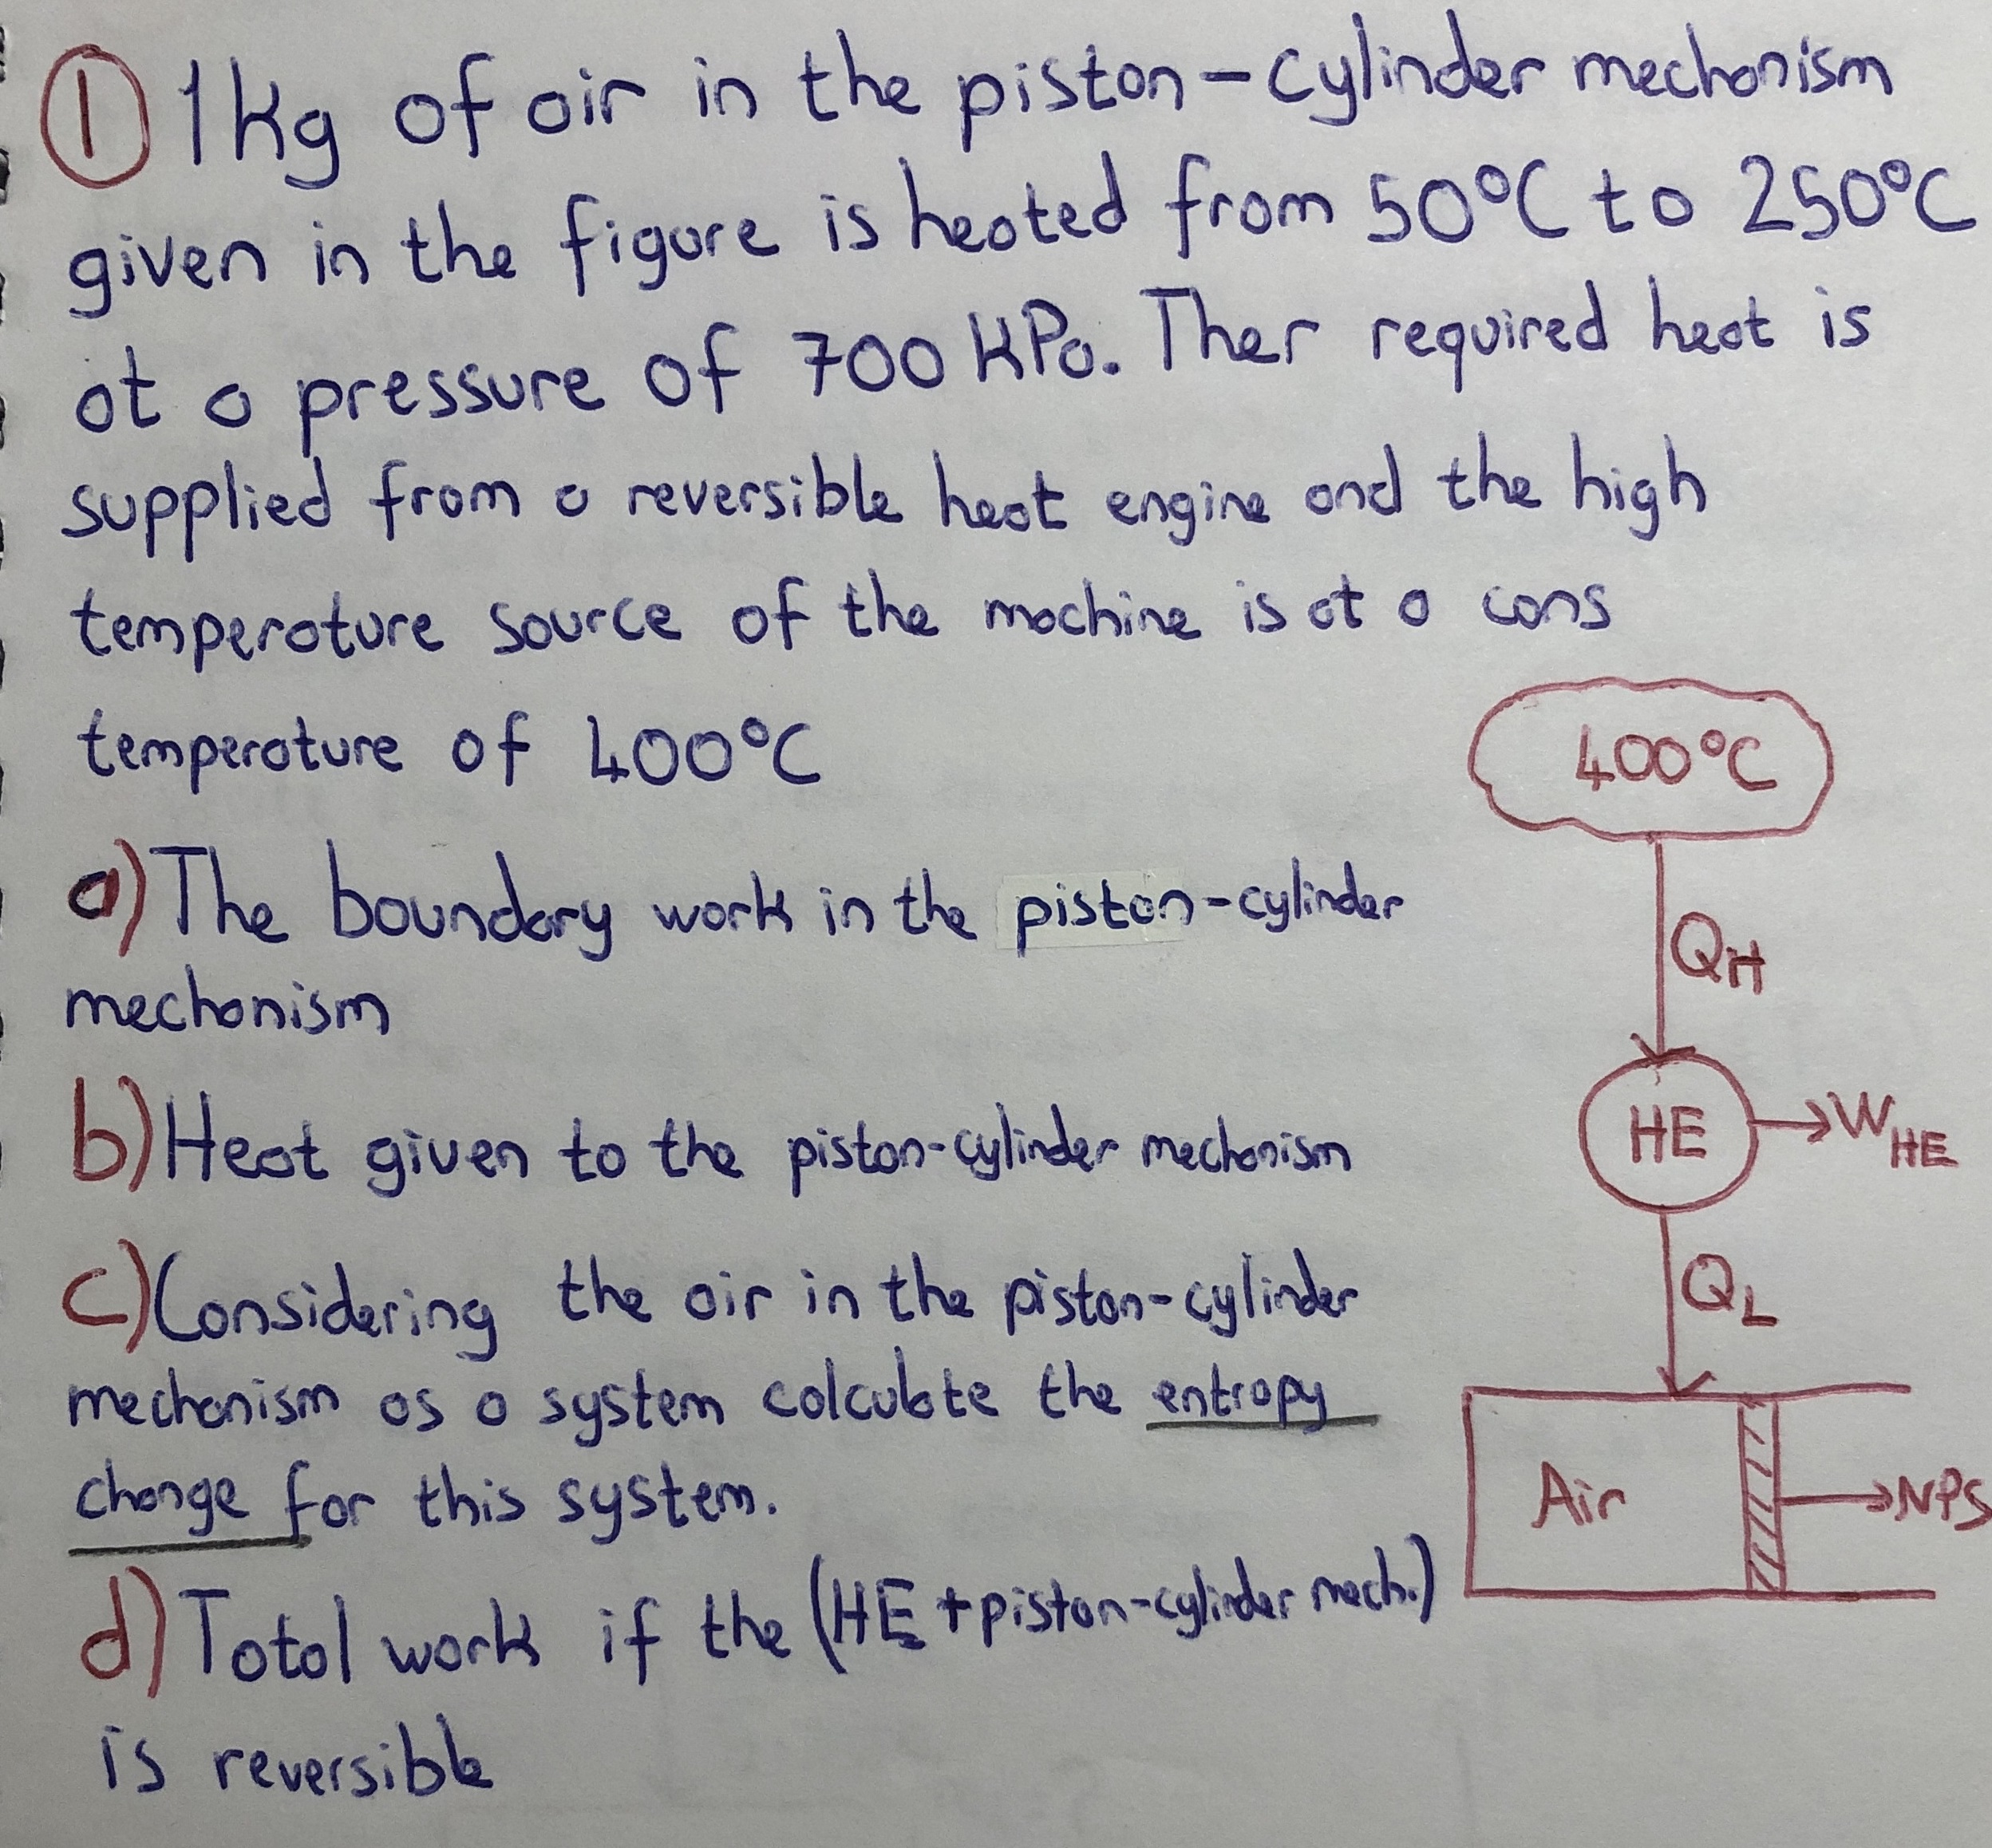 ① 1kg of air in the piston-cylinder mechanism
given in the figure is heated from 50°C to 250°C
at a pressure of 700 KPa. Ther required heat is
supplied from a reversible heat engine and the high
temperature source of the machine is at a cons
temperature of 400°C
a) The boundary work in the piston-cylinder
mechanism
b) Heat given to the piston-cylinder mechanism
c) Considering the air in the piston-cylinder
mechanism as a system calculate the entropy
change for this system.
d) Total work if the (HE + piston-cylinder mech.)
is reversible
400°C
QH
HE
WHE
QL
Air
NPS